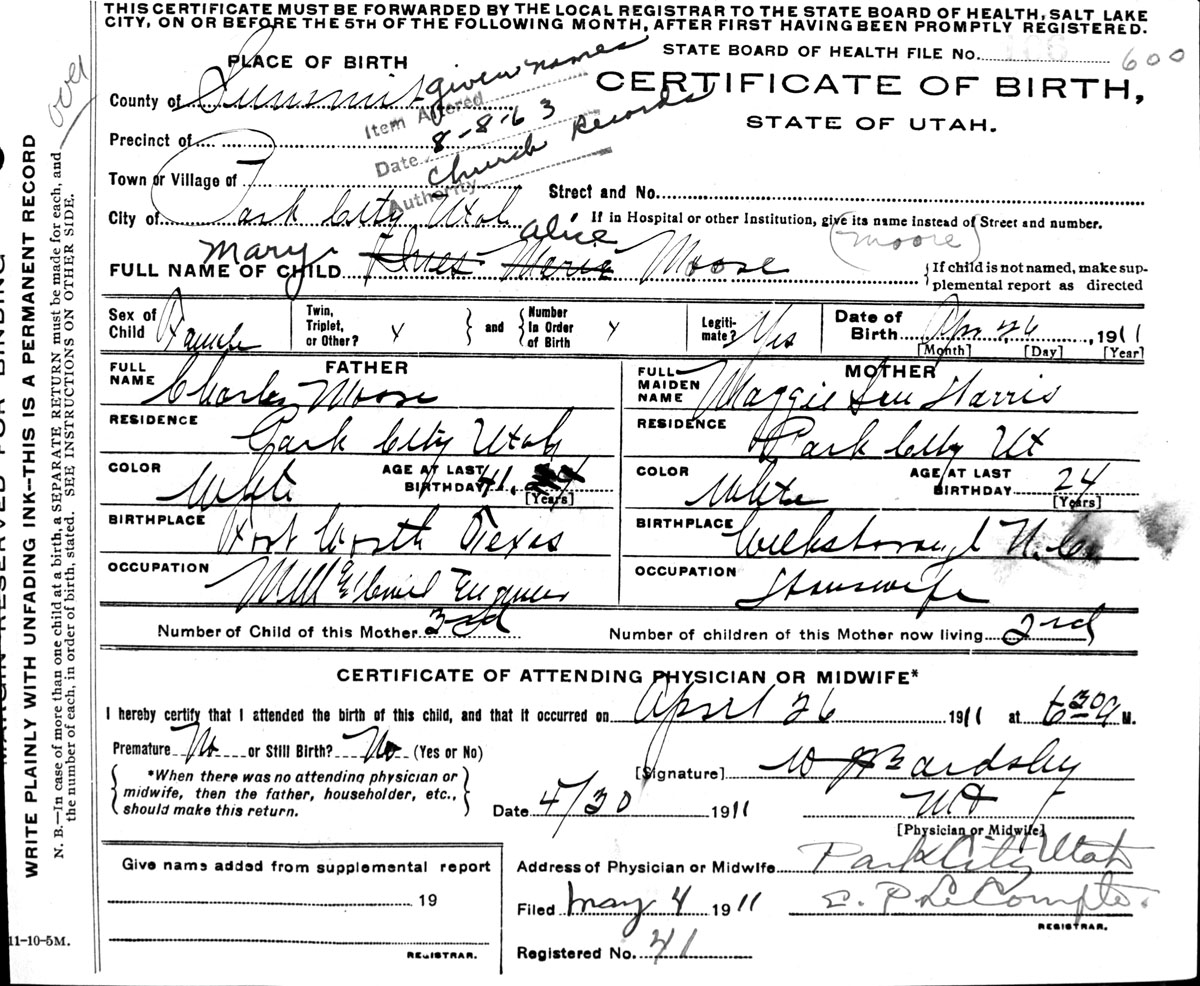 THIS CERTIFICATE MUST BE FORWARDED BY THE LOCAL REGISTRAR TO THE STATE BOARD OF HEALTH, SALT LAKE
CITY, ON OR BEFORE THE 5TH OF THE FOLLOWING MONTH, AFTER FIRST HAVING BEEN PROMPTLY REGISTERED.
STATE BOARD OF HEALTH FILE No. 600
PLACE OF BIRTH
CERTIFICATE OF BIRTH,
STATE OF UTAH.
over
County of Summit
given names
Item Altered
8-8-63
Date
Church Records
Authority
Precinct of
Town or Village of
Street and No.
City of Park City Utah
If in Hospital or other Institution, give its name instead of Street and number.
Mary Alice (Moore)
FULL NAME OF CHILD Inez Marie Moose
{If child is not named, make sup-
plemental report as directed
Sex of Child Female
Twin, Triplet, or Other? x } and { Number In Order of Birth x
Legiti-mate? Yes
Date of Birth Apr 26, 1911
[Month] [Day] [Year]
FATHER
FULL NAME Charles Moose
RESIDENCE Park City Utah
COLOR White AGE AT LAST BIRTHDAY 41 [Years]
BIRTHPLACE Fort Worth Texas
OCCUPATION Mill & Civil Engineer
MOTHER
FULL MAIDEN NAME Maggie Harris
RESIDENCE Park City Ut
COLOR White AGE AT LAST BIRTHDAY 24 [Years]
BIRTHPLACE Wilksborough N.C.
OCCUPATION Housewife
Number of Child of this Mother 3rd Number of children of this Mother now living 2rd
CERTIFICATE OF ATTENDING PHYSICIAN OR MIDWIFE*
I hereby certify that I attended the birth of this child, and that it occurred on April 26 1911 at 6 30 a M.
Premature No or Still Birth? No (Yes or No)
{ *When there was no attending physician or
midwife, then the father, householder, etc.,
should make this return. }
[Signature] W J Bardsley
Date 4/30 1911 MD
[Physician or Midwife]
Give name added from supplemental report
19
REGISTRAR.
Address of Physician or Midwife Park City Utah
Filed May 4 1911 E. P. LeCompte.
REGISTRAR.
Registered No. 41
11-10-5M.
MARGIN RESERVED FOR BINDING
WRITE PLAINLY WITH UNFADING INK--THIS IS A PERMANENT RECORD
N. B.—In case of more than one child at a birth, a SEPARATE RETURN must be made for each, and
the number of each, in order of birth, stated. SEE INSTRUCTIONS ON OTHER SIDE.